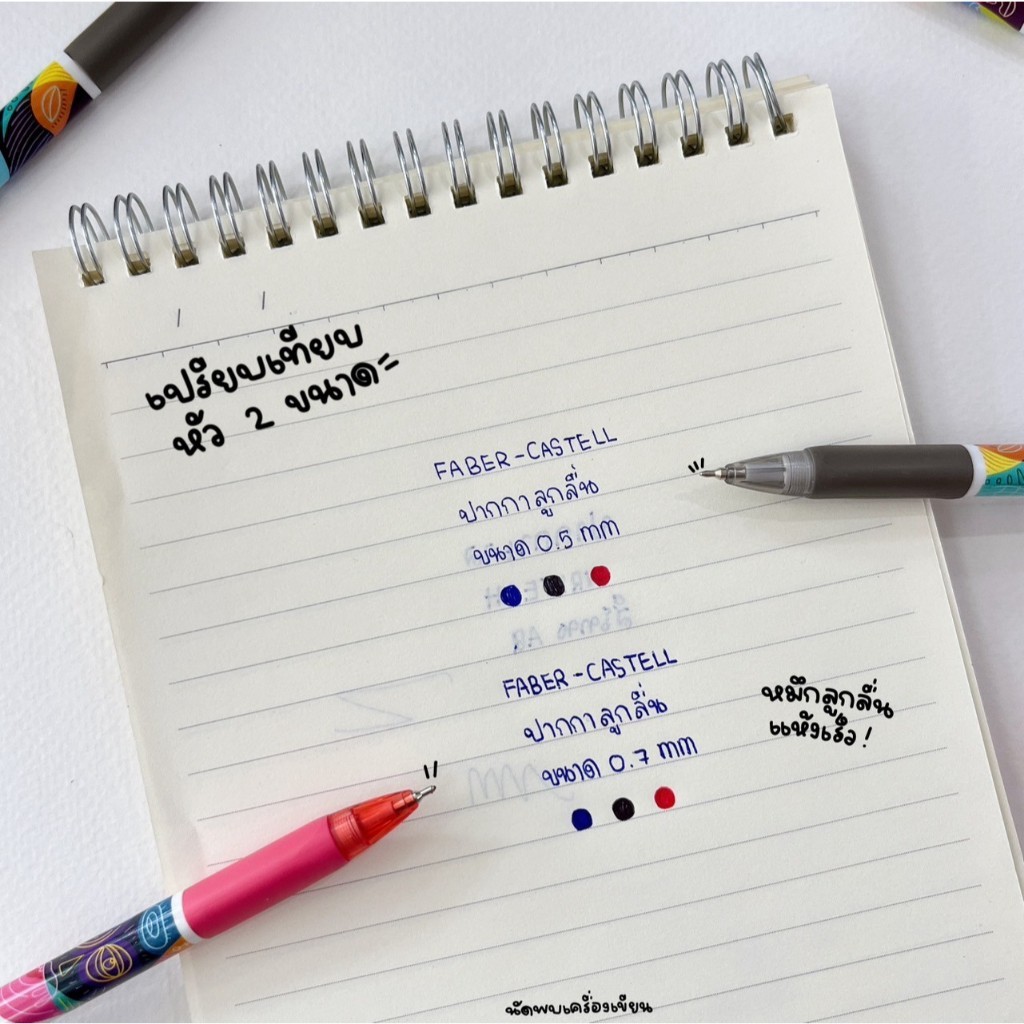 เปรียบเทียบ
หัว 2 ขนาด=
FABER-CASTELL
ปากกาลูกลื่น
ขนาด 0.5 mm
FABER-CASTELL
ปากกาลูกลื่น
ขนาด 0.7 mm
หมึกลูกลื่น
แห้งเร็ว!
นัดพบเครื่องเขียน